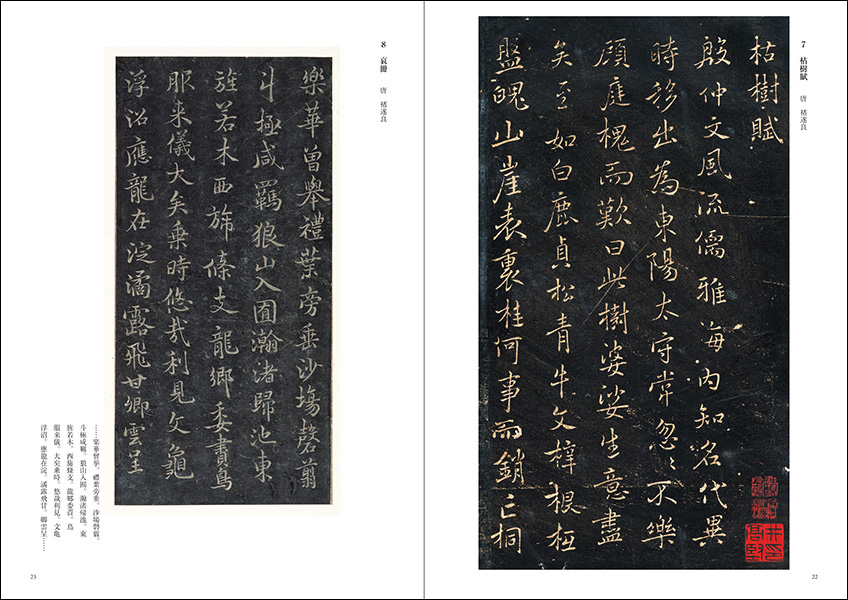 7 枯樹賦 唐 褚遂良
枯樹賦
殷仲文風流儒雅海內知名代異
時移出為東陽太守常忽〻不樂
顧庭槐而歎曰此樹婆娑生意盡
矣至如白鹿貞松青牛文梓根柢
盤魄山崖表裏桂何事而銷亡桐
22
8 哀冊 唐 褚遂良
樂華曾舉禮葉旁垂沙場罄翦
斗極咸羈狼山入囿瀚渚歸池東
旌若木西旆條支龍鄉委賮鳥
服来儀大矣乗時悠哉利見文龜
浮沼應龍在淀潏露飛甘卿雲呈
……樂華曾舉。禮葉旁垂。沙場罄翦。
斗極咸羈。狼山入囿。瀚渚歸池。東
旌若木。西旆條支。龍鄉委賮。鳥
服来儀。大矣乘時。悠哉利見。文龜
浮沼。應龍在淀。潏露飛甘。卿雲呈……
23